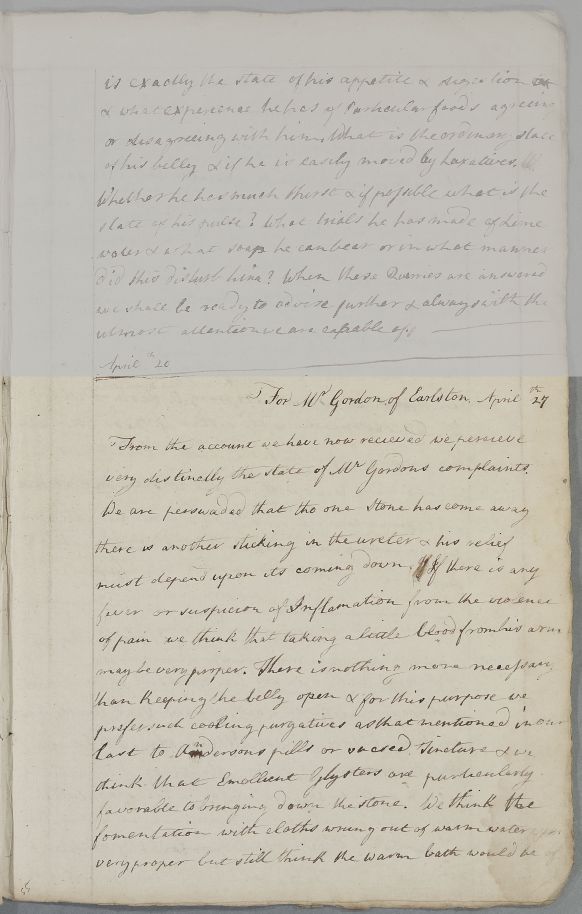 is exactly the state of his appetite & digestion
& what experience he has of Particular foods agreeing
or disagreeing with him. What is the ordinary state
of his belly & if he is easily moved by Laxatives.
Whether he has much thirst & if possible what is the
state of his pulse? What trials he has made of Lime
water & what soap he can bear or in what manner
did this disturb him? When these Queries are answered
we shall be ready to advise further & always with the
utmost attention we are capable of
April 20th
For Mr Gordon of Earlston, April 27th
From the account we have now recieved we percieve
very distinctly the state of Mr Gordons complaints.
We are perswaded that tho one Stone has come away
there is another sticking in the ureter & his relief
must depend upon its coming down. If there is any
fever or suspicion of Inflamation from the violence
of pain we think that taking a little blood from his arm
may be very proper. There is nothing more necessary
than Keeping the belly open & for this purpose we
prefer such cooling purgatives as that mentioned in our
last to Andersons pills or sacred Tincture & we
think that Emollient Glysters are particularly
favorable to bringing down the stone. We think the
fomentation with cloths wrung out of warm water
very proper but still think the warm bath would be of